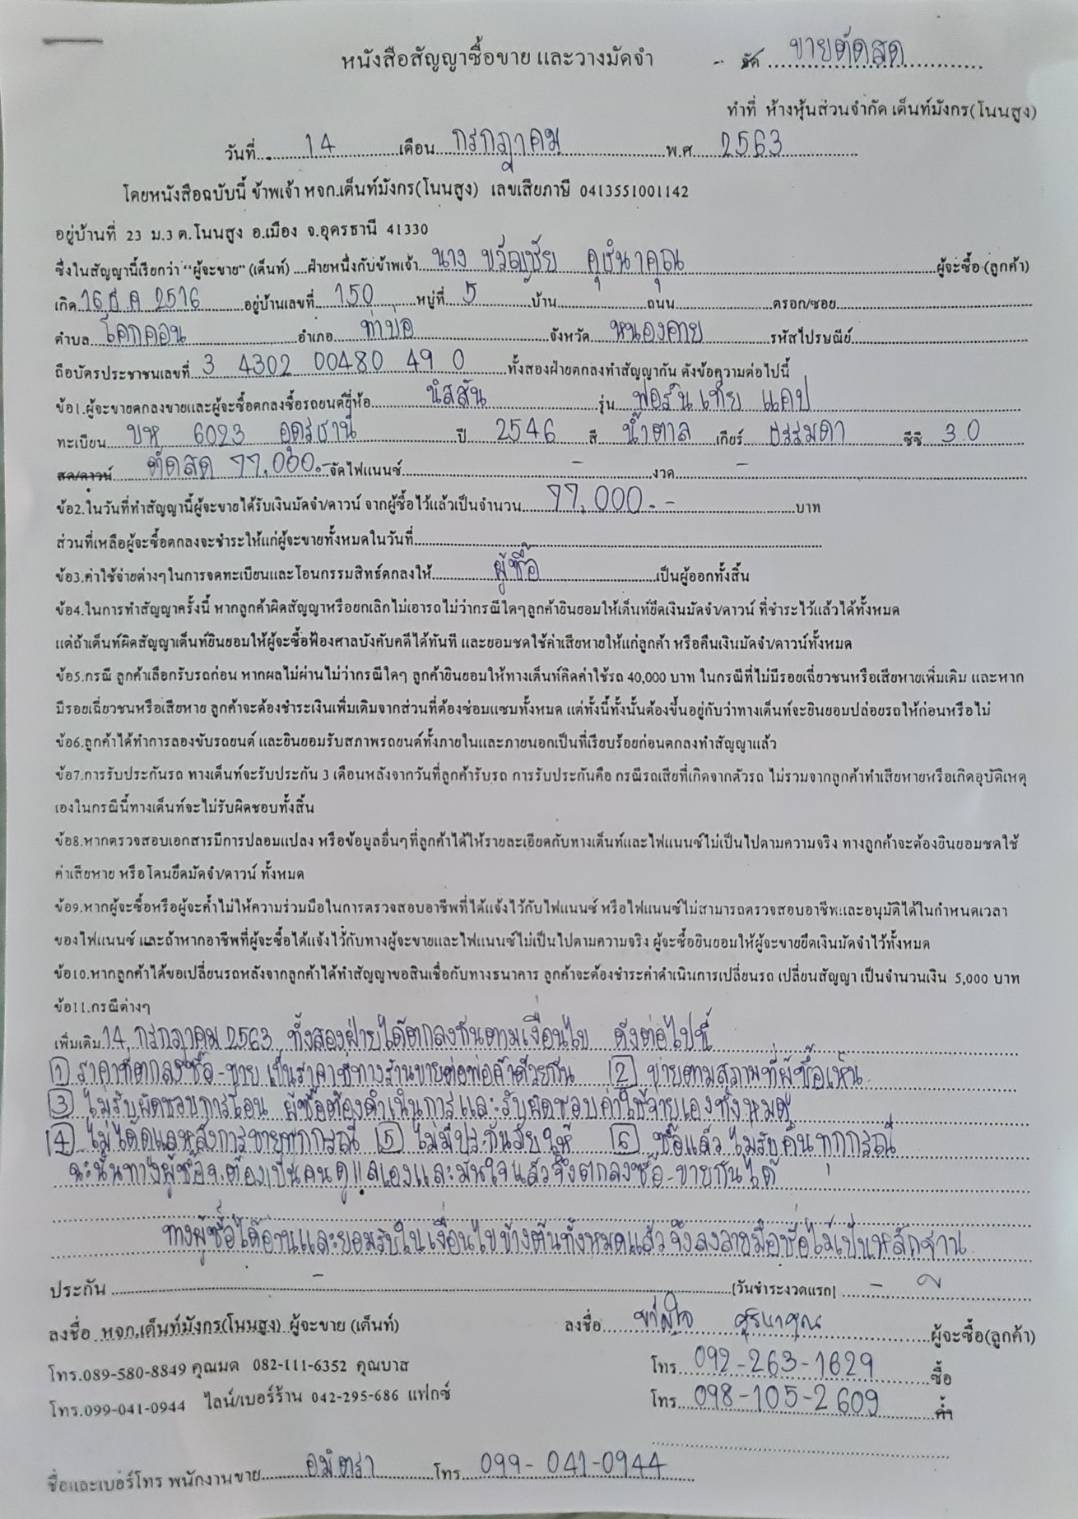 หนังสือสัญญาซื้อขาย และวางมัดจำ - จัด ขายตัดสด
ทำที่ ห้างหุ้นส่วนจำกัด เต็นท์มังกร(โนนสูง)
วันที่ 14 เดือน กรกฎาคม พ.ศ. 2563
โดยหนังสือฉบับนี้ ข้าพเจ้า หจก.เต็นท์มังกร(โนนสูง) เลขเสียภาษี 0413551001142
อยู่บ้านที่ 23 ม.3 ต.โนนสูง อ.เมือง จ.อุดรธานี 41330
ซึ่งในสัญญานี้เรียกว่า "ผู้จะขาย" (เต็นท์) ....ฝ่ายหนึ่งกับข้าพเจ้า นาง ขวัญชัย ผู้จะซื้อ (ลูกค้า)
เกิด 16 ธ.ค 2516 อยู่บ้านเลขที่ 150 หมู่ที่ 5 บ้าน ถนน ตรอก/ซอย
ตำบล โคกคอน อำเภอ ท่าบ่อ จังหวัด หนองคาย รหัสไปรษณีย์
ถือบัตรประชาชนเลขที่ 3 4302 00480 49 0 ทั้งสองฝ่ายตกลงทำสัญญากัน ดังข้อความต่อไปนี้
ข้อ1.ผู้จะขายตกลงขายและผู้จะซื้อตกลงซื้อรถยนต์ยี่ห้อ นิสสัน รุ่น ฟอร์นเทีย แคป
ทะเบียน บห 6023 อุดรธานี ปี 2546 สี น้ำตาล เกียร์ ธรรมดา ซีซี 3.0
สด/ดาวน์ ตัดสด 77,000.- จัดไฟแนนซ์ - งวด -
ข้อ2.ในวันที่ทำสัญญานี้ผู้จะขายได้รับเงินมัดจำ/ดาวน์ จากผู้ซื้อไว้แล้วเป็นจำนวน 77,000.- บาท
ส่วนที่เหลือผู้จะซื้อตกลงจะชำระให้แก่ผู้จะขายทั้งหมดในวันที่
ข้อ3.ค่าใช้จ่ายต่างๆในการจดทะเบียนและโอนกรรมสิทธ์ตกลงให้ ผู้ซื้อ เป็นผู้ออกทั้งสิ้น
ข้อ4.ในการทำสัญญาครั้งนี้ หากลูกค้าผิดสัญญาหรือยกเลิกไม่เอารถไม่ว่ากรณีใดๆลูกค้ายินยอมให้เต็นท์ยึดเงินมัดจำ/ดาวน์ ที่ชำระไว้แล้วได้ทั้งหมด
แต่ถ้าเต็นท์ผิดสัญญาเต็นท์ยินยอมให้ผู้จะซื้อฟ้องศาลบังคับคดีได้ทันที และยอมชดใช้ค่าเสียหายให้แก่ลูกค้า หรือคืนเงินมัดจำ/ดาวน์ทั้งหมด
ข้อ5.กรณี ลูกค้าเลือกรับรถก่อน หากผลไม่ผ่านไม่ว่ากรณีใดๆ ลูกค้ายินยอมให้ทางเต็นท์คิดค่าใช้รถ 40,000 บาท ในกรณีที่ไม่มีรอยเฉี่ยวชนหรือเสียหายเพิ่มเติม และหาก
มีรอยเฉี่ยวชนหรือเสียหาย ลูกค้าจะต้องชำระเงินเพิ่มเติมจากส่วนที่ต้องซ่อมแซมทั้งหมด แต่ทั้งนี้ทั้งนั้นต้องขึ้นอยู่กับว่าทางเต็นท์จะยินยอมปล่อยรถให้ก่อนหรือไม่
ข้อ6.ลูกค้าได้ทำการลองขับรถยนต์ และยินยอมรับสภาพรถยนต์ทั้งภายในและภายนอกเป็นที่เรียบร้อยก่อนตกลงทำสัญญาแล้ว
ข้อ7.การรับประกันรถ ทางเต็นท์จะรับประกัน 3 เดือนหลังจากวันที่ลูกค้ารับรถ การรับประกันคือ กรณีรถเสียที่เกิดจากตัวรถ ไม่รวมจากลูกค้าทำเสียหายหรือเกิดอุบัติเหตุ
เองในกรณีนี้ทางเต็นท์จะไม่รับผิดชอบทั้งสิ้น
ข้อ8.หากตรวจสอบเอกสารมีการปลอมแปลง หรือข้อมูลอื่นๆที่ลูกค้าได้ให้รายละเอียดกับทางเต็นท์และไฟแนนซ์ไม่เป็นไปตามความจริง ทางลูกค้าจะต้องยินยอมชดใช้
ค่าเสียหาย หรือโดนยึดมัดจำ/ดาวน์ ทั้งหมด
ข้อ9.หากผู้จะซื้อหรือผู้จะค้ำไม่ให้ความร่วมมือในการตรวจสอบอาชีพที่ได้แจ้งไว้กับไฟแนนซ์ หรือไฟแนนซ์ไม่สามารถตรวจสอบอาชีพและอนุมัติได้ในกำหนดเวลา
ของไฟแนนซ์ และถ้าหากอาชีพที่ผู้จะซื้อได้แจ้งไว้กับทางผู้จะขายและไฟแนนซ์ไม่เป็นไปตามความจริง ผู้จะซื้อยินยอมให้ผู้จะขายยึดเงินมัดจำไว้ทั้งหมด
ข้อ10.หากลูกค้าได้ขอเปลี่ยนรถหลังจากลูกค้าได้ทำสัญญาขอสินเชื่อกับทางธนาคาร ลูกค้าจะต้องชำระค่าดำเนินการเปลี่ยนรถ เปลี่ยนสัญญา เป็นจำนวนเงิน 5,000 บาท
ข้อ11.กรณีต่างๆ
เพิ่มเติม 14 กรกฎาคม 2563 ทั้งสองฝ่ายได้ตกลงกันตามเงื่อนไข ดังต่อไปนี้
1 ราคาที่ตกลงซื้อ-ขาย เป็นราคาที่ทางร้านขายต่อพ่อค้าด้วยกัน 2 ขายตามสภาพที่ผู้ซื้อเห็น
3 ไม่รับผิดชอบการโอน ผู้ซื้อต้องดำเนินการและรับผิดชอบค่าใช้จ่ายเองทั้งหมด
4 ไม่ได้ดูแลหลังการขายทุกกรณี 5 ไม่มีประกันภัยให้ 6 ซื้อแล้วไม่รับคืนทุกกรณี
ฉะนั้นทางผู้ซื้อจะต้องเป็นคนดูแลเองและมั่นใจแล้วจึงตกลงซื้อ-ขายกันได้
ทางผู้ซื้อได้อ่านและยอมรับในเงื่อนไขข้างต้นทั้งหมดแล้วจึงลงลายมือชื่อไว้เป็นหลักฐาน
ประกัน - (วันชำระงวดแรก) -
ลงชื่อ หจก.เต็นท์มังกร(โนนสูง) ผู้จะขาย (เต็นท์) ลงชื่อ ผู้จะซื้อ(ลูกค้า)
โทร.089-580-8849 คุณมด 082-111-6352 คุณบาส โทร. 092-263-1629 ซื้อ
โทร.099-041-0944 ไลน์/เบอร์ร้าน 042-295-686 แฟกซ์ โทร. 098-105-2609 ค้ำ
ชื่อและเบอร์โทร พนักงานขาย อมิตรา โทร 099-041-0944